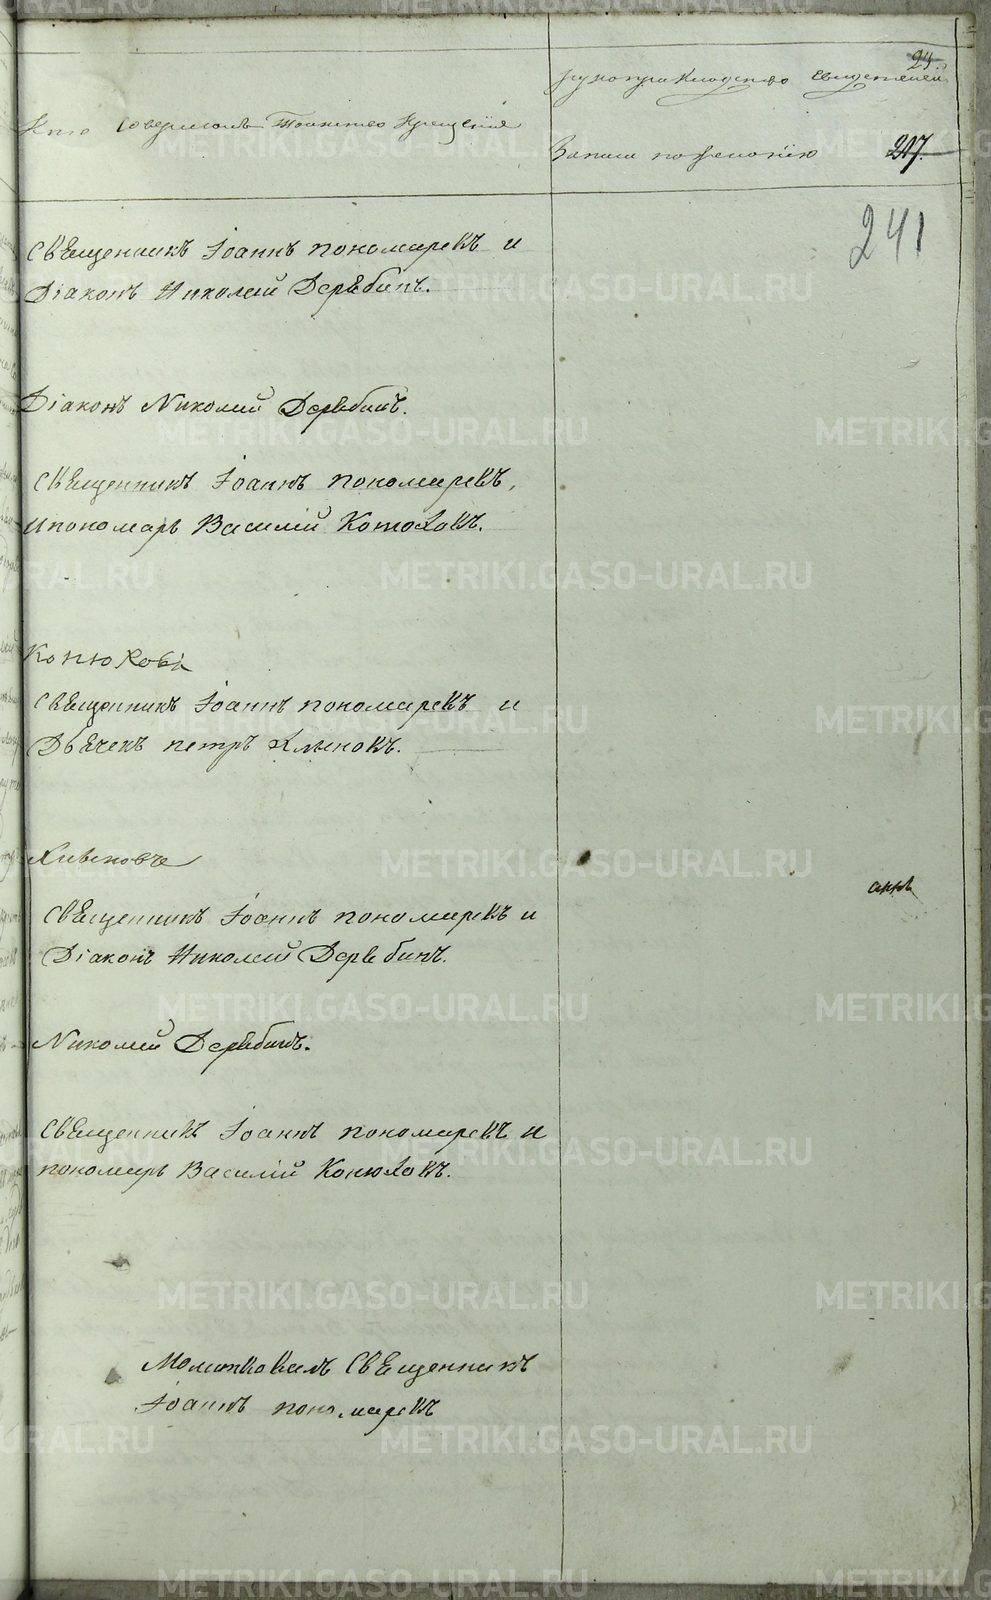 23.
рукоприкладство свидетелей
Кто совершалъ Таинство Крещенія
Записи по желанію
217.
241
Священникъ Іоаннъ пономаревъ и
Діаконъ Николай Дерябинъ.
Діаконъ Николай Дерябинъ.
Священникъ Іоаннъ пономаревъ,
и пономарь Василій Конюховъ.
Конюхова
Священникъ Іоаннъ пономаревъ и
Дьячекъ петръ
Священникъ Іоаннъ пономаревъ и
Діаконъ Николай Дерябинъ.
Николай Дерябинъ.
Священникъ Іоаннъ пономаревъ и
пономарь Василій Конюховъ.
Молитвовалъ Священникъ
Іоаннъ пономаревъ
METRIKI.GASO-URAL.RU